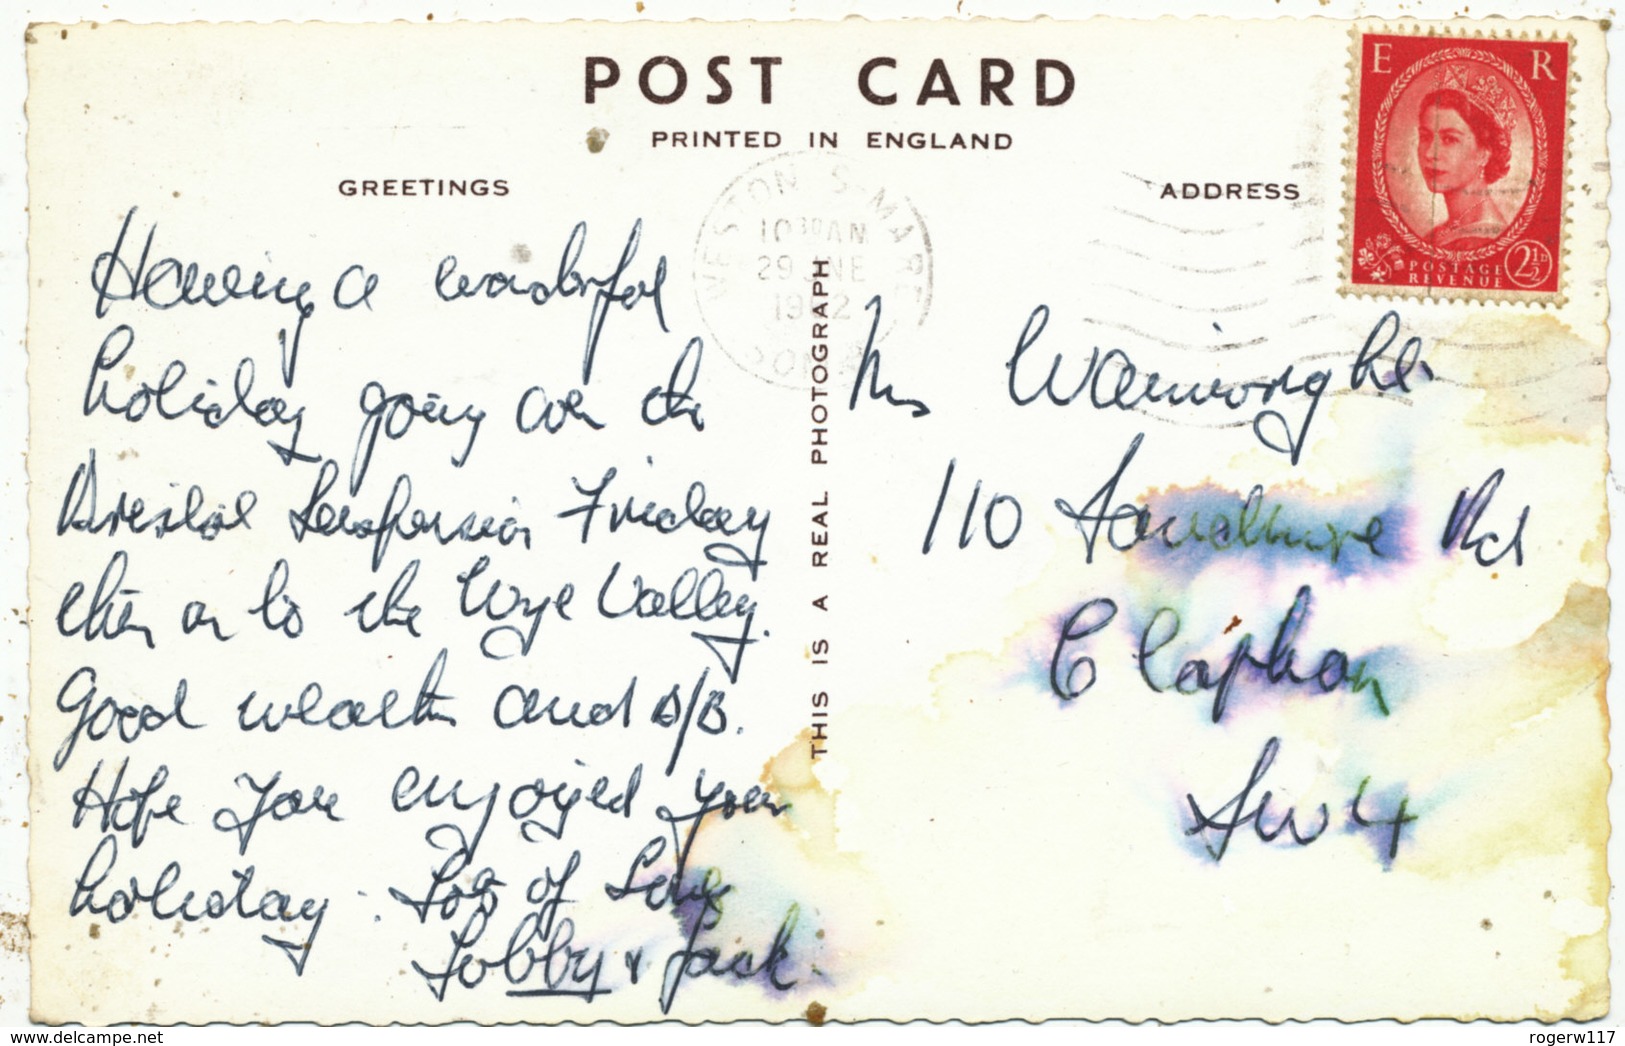 POST CARD
PRINTED IN ENGLAND
GREETINGS
ADDRESS
E R
POSTAGE
REVENUE
2½D
WESTON S. MARE
10 30 AM
29 JNE
1962
SOM
THIS IS A REAL PHOTOGRAPH
Having a wonderful
holiday going over the
Bristol Suspension Friday
then on to the Wye Valley.
Good weather and B/B.
Hope you enjoyed your
holiday. Lots of Love
Lobby & Jack.
Mrs Wainwright
110 Sandmere Rd
Clapham
SW4
delcampe.net
rogerw117